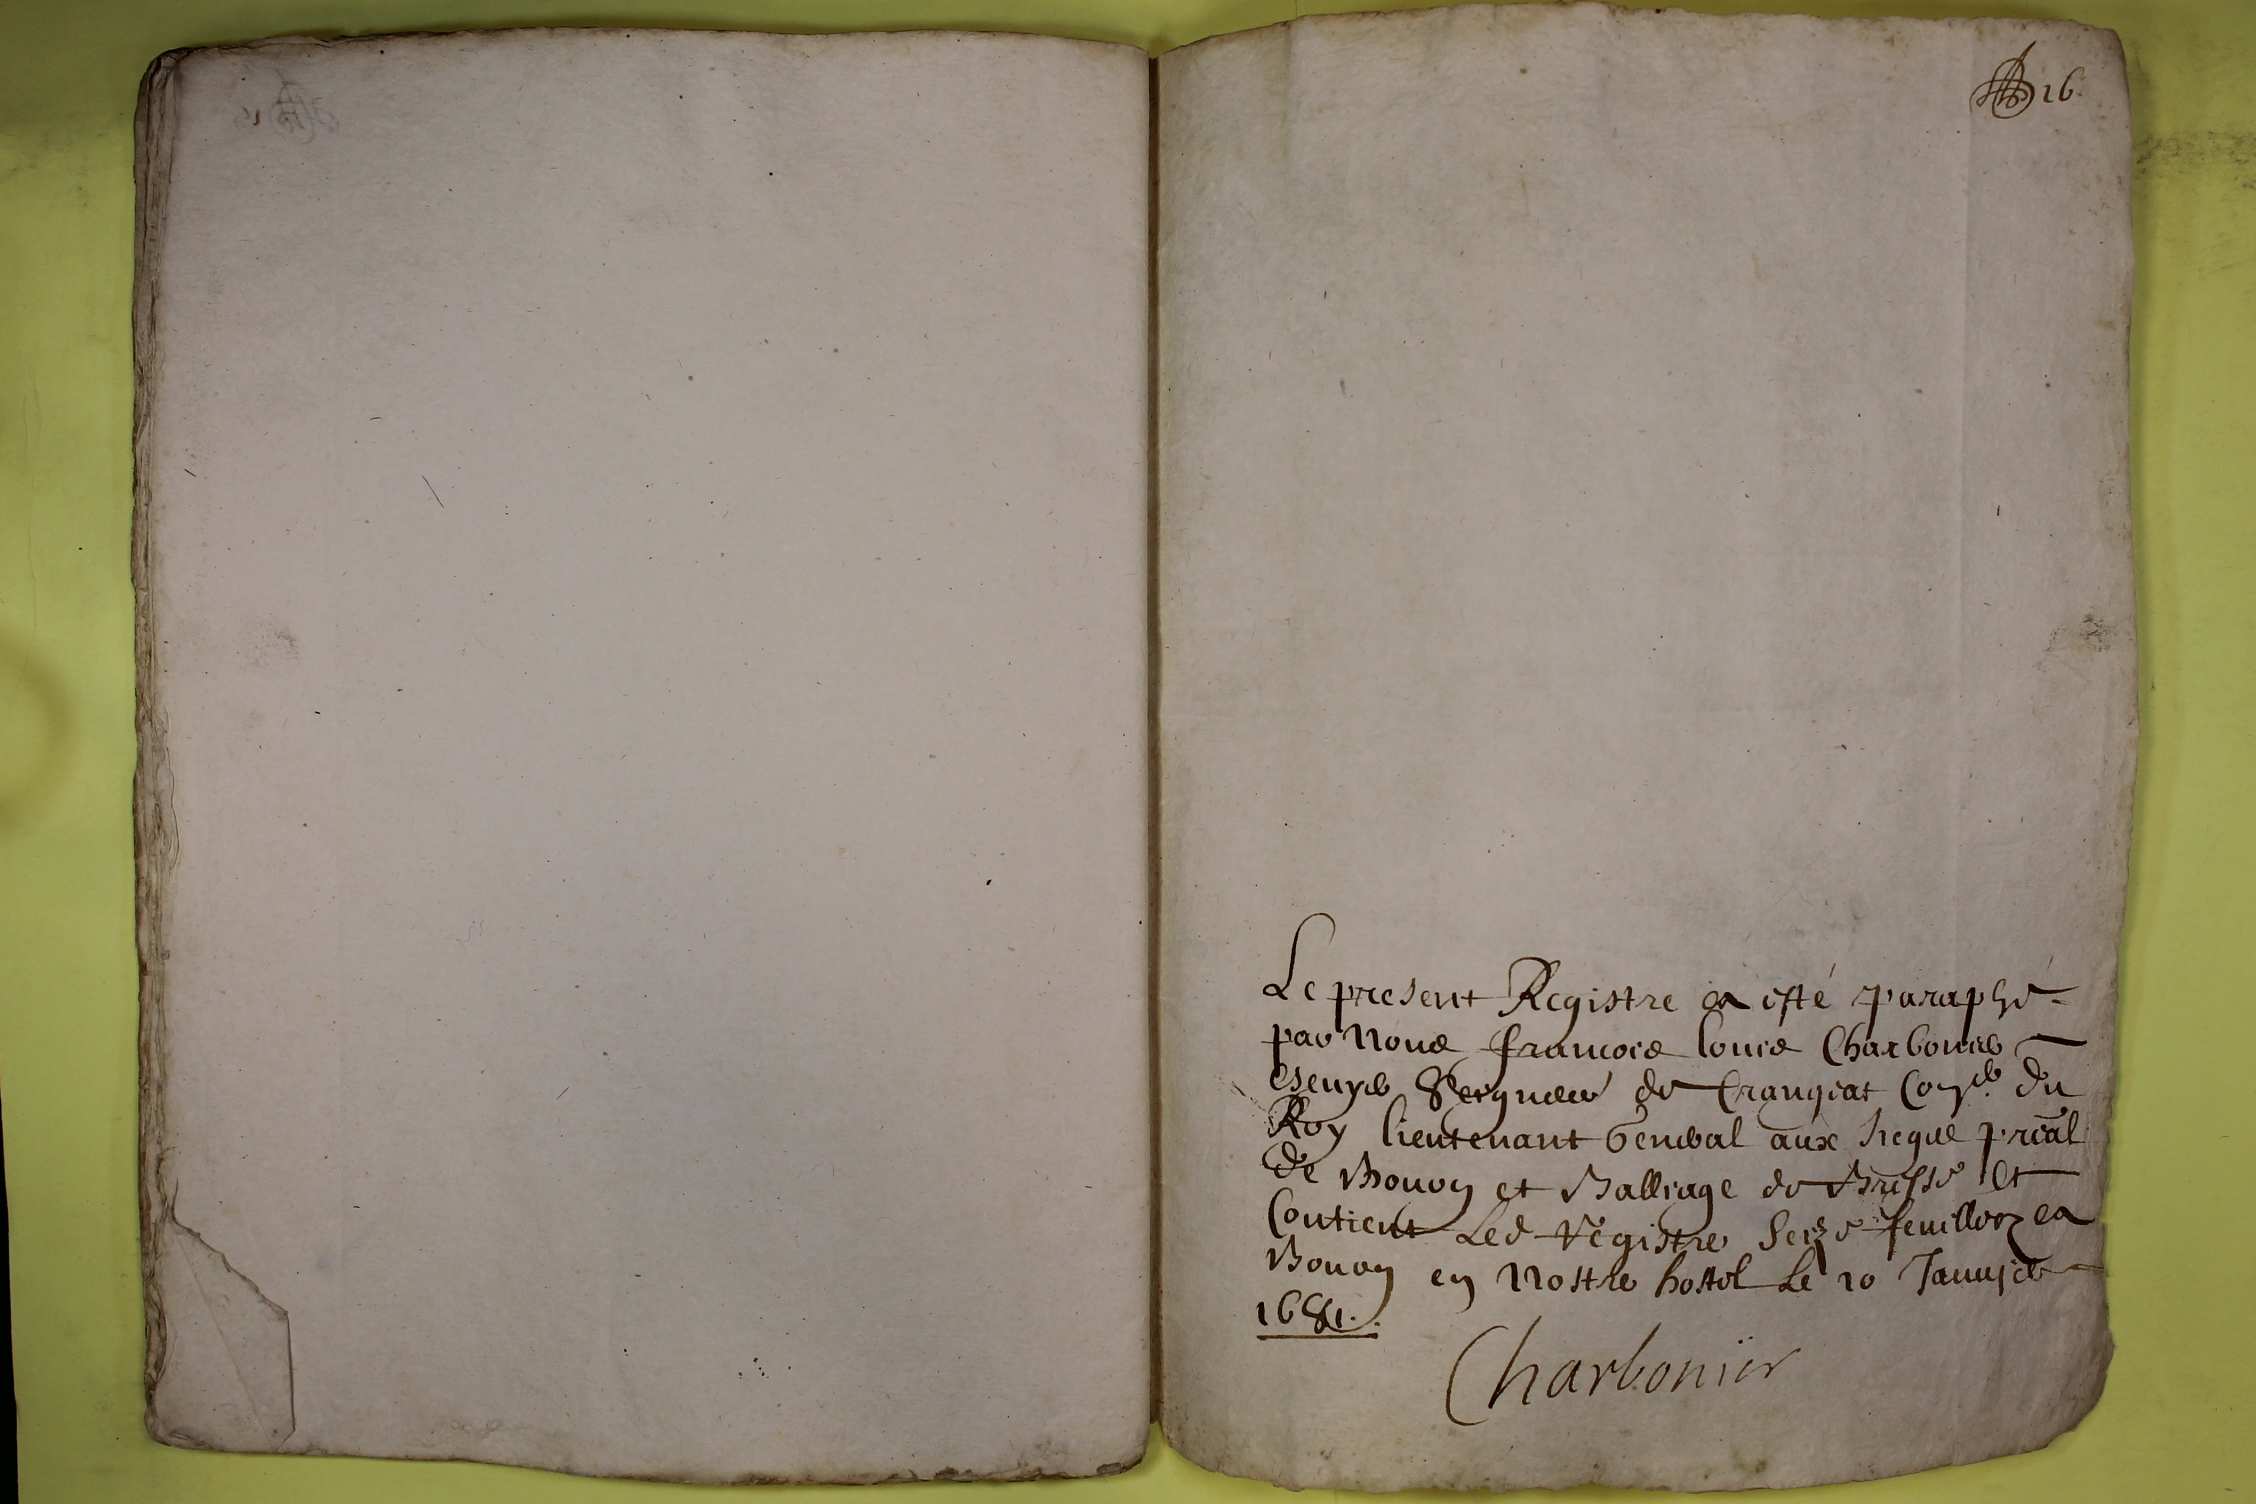 16.
Le present Registre a esté paraphé
par Nous francois louis Charbonier
escuyer Seigneur de Crangeat Con.er du
Roy lieutenant General aux siege prical
de Bourg et Balliage de Bresse et
Contient Led Registre Seize feuillets a
Bourg en Nostre hostel Le 10 Januier
1681.
Charbonier